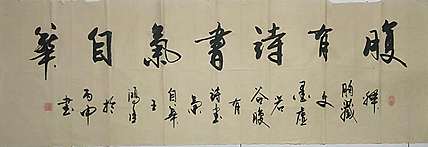 腹有詩書氣自華
胸藏
文墨虛
若谷腹
有詩書
氣自華
於丙申
書